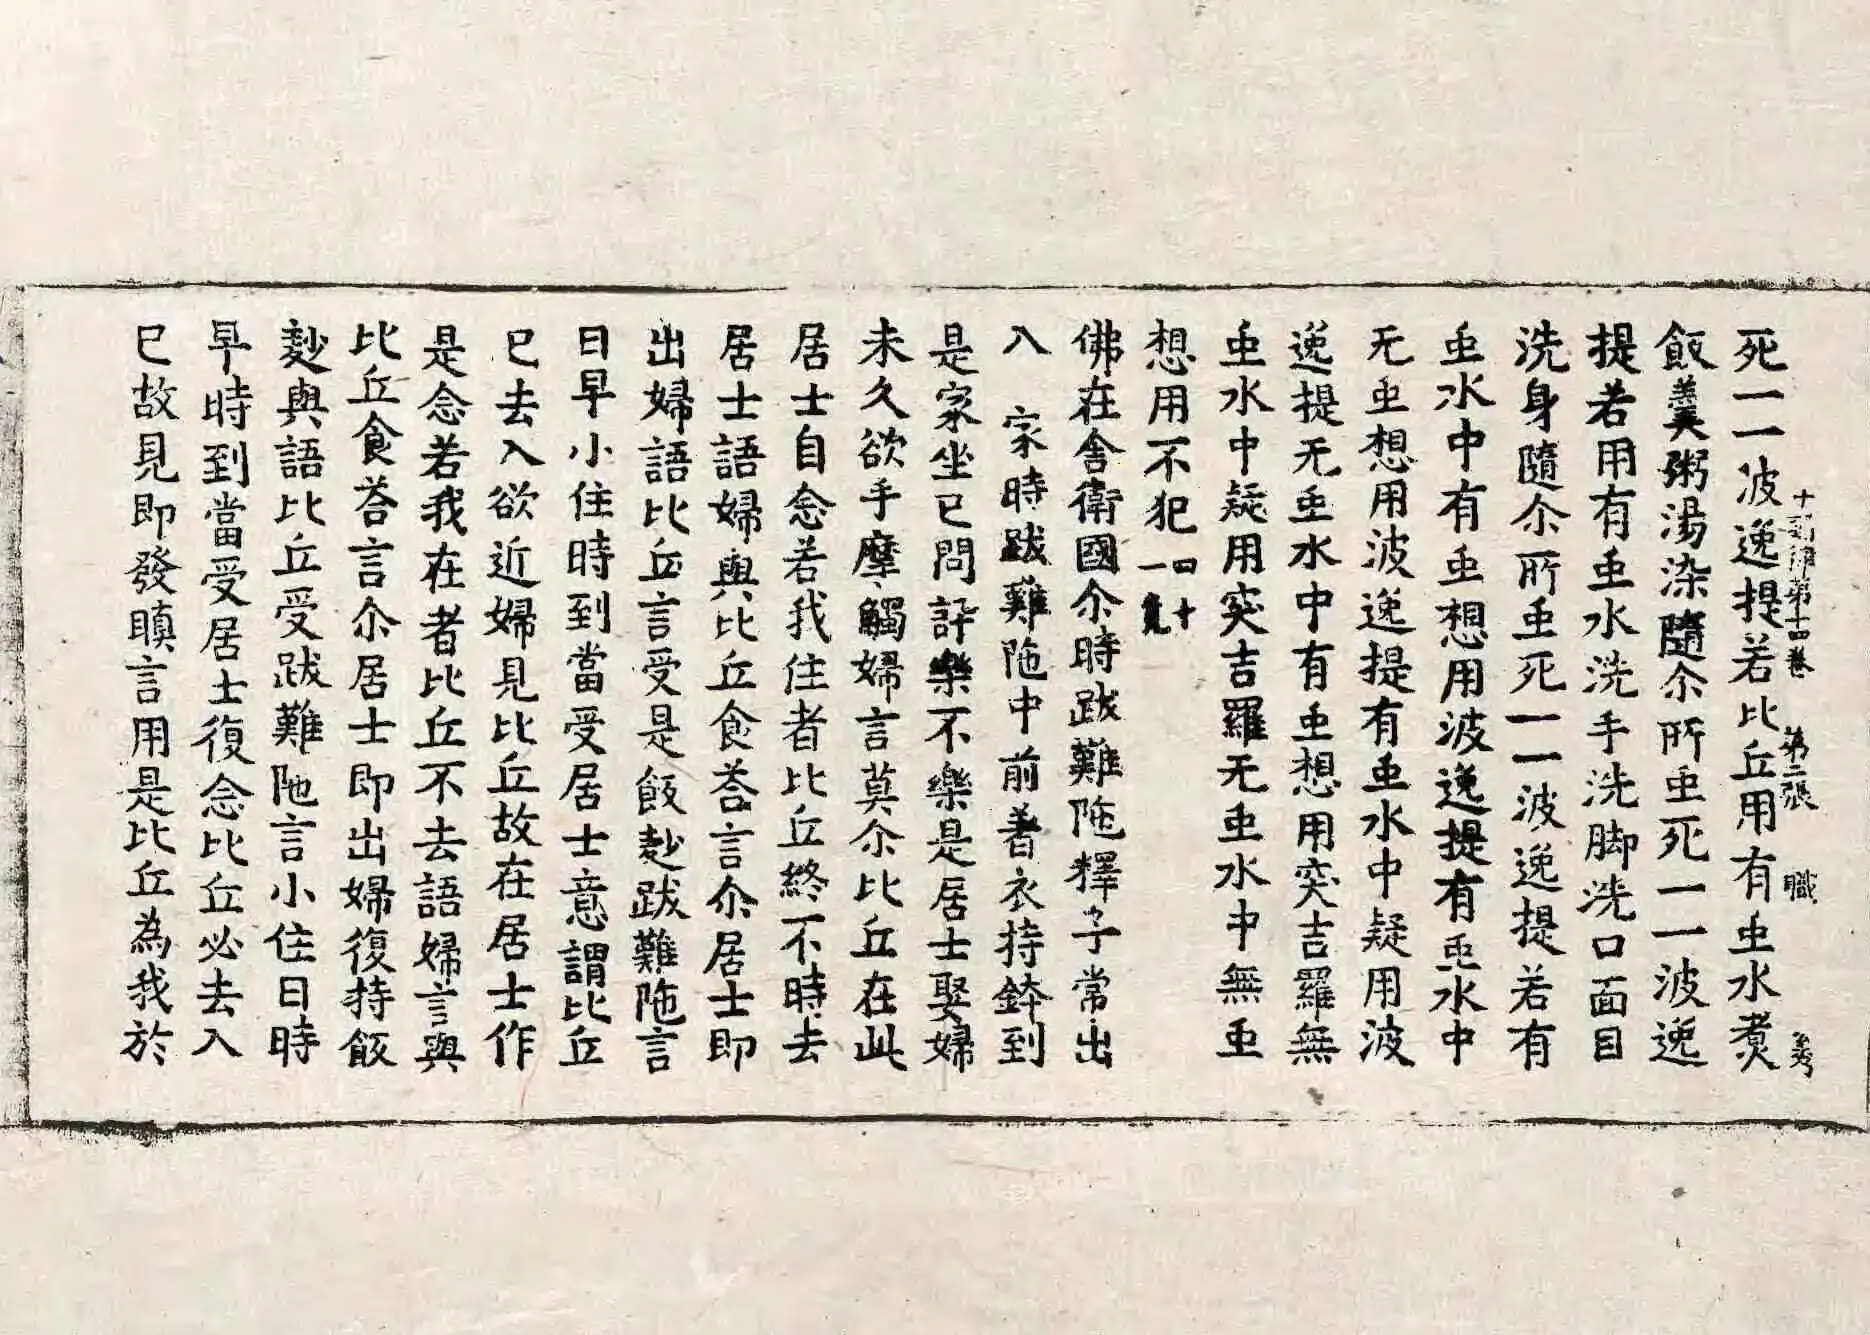 十誦律第十四卷 第二張 職
死一一波逸提若比丘用有虫水煮
飯羹粥湯染隨尒所虫死一一波逸
提若用有虫水洗手洗脚洗口面目
洗身隨尒所虫死一一波逸提若有
虫水中有虫想用波逸提有虫水中
无虫想用波逸提有虫水中疑用波
逸提无虫水中有虫想用突吉羅無
虫水中疑用突吉羅无虫水中無虫
想用不犯四十一竟
佛在舍衛國尒時跋難陁釋子常出
入家時跋難陁中前著衣持鉢到
是家坐已問訊樂不樂是居士娶婦
未久欲手摩觸婦言莫尒比丘在此
居士自念若我住者比丘終不時去
居士語婦與比丘食荅言尒居士即
出婦語比丘言受是飯麨跋難陁言
日早小住時到當受居士意謂比丘
已去入欲近婦見比丘故在居士作
是念若我在者比丘不去語婦言與
比丘食荅言尒居士即出婦復持飯
麨與語比丘受跋難陁言小住日時
早時到當受居士復念比丘必去入
已故見即發瞋言用是比丘為我於